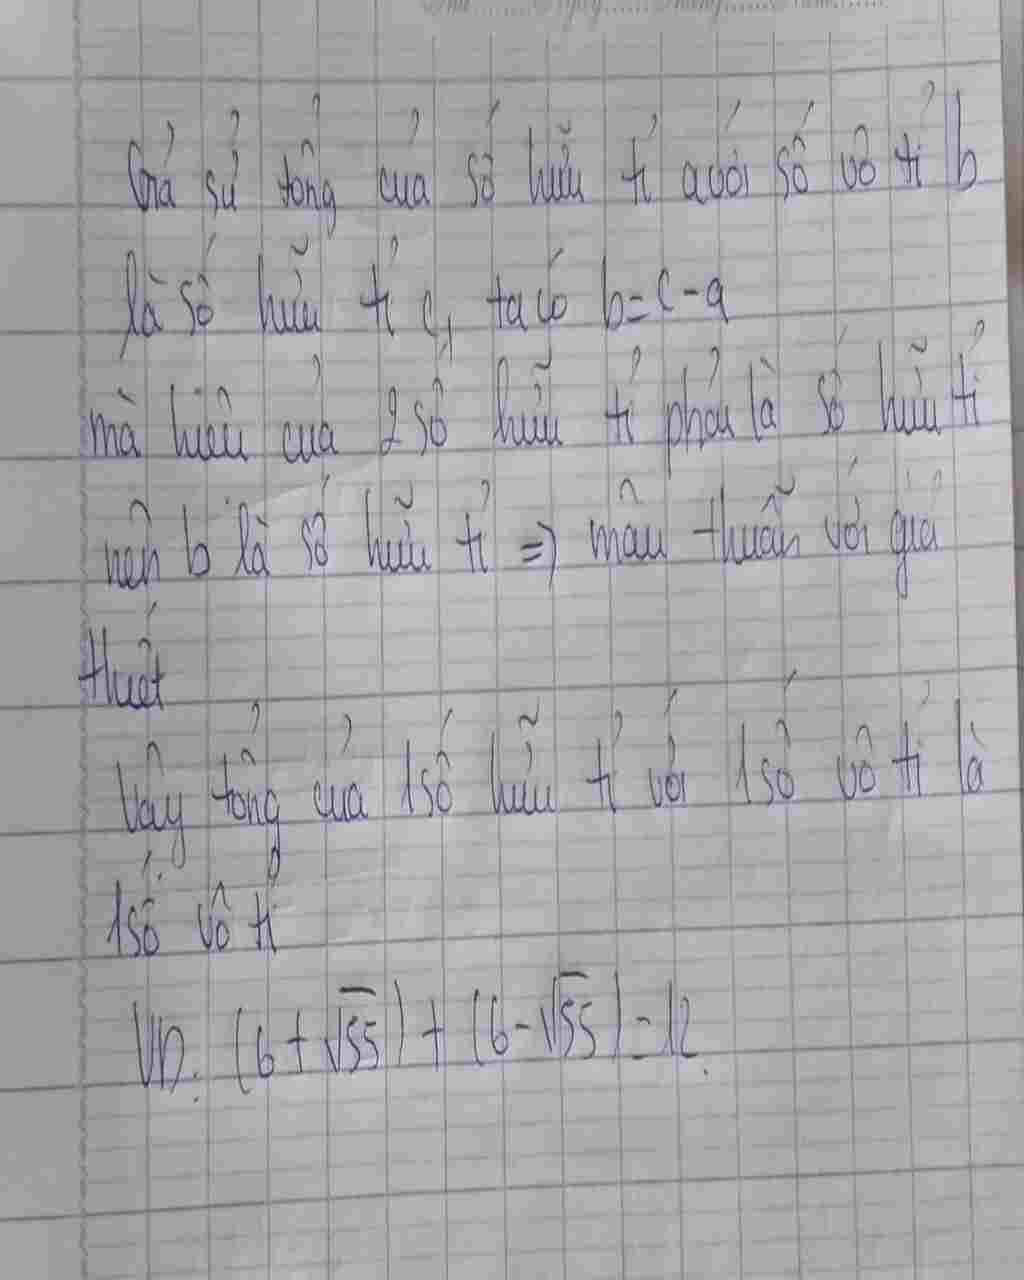 Thứ.......ngày......tháng......năm......
Giả sử tổng của số hữu tỉ a với số vô tỉ b
là số hữu tỉ c, ta có b = c - a
mà hiệu của 2 số hữu tỉ phải là số hữu tỉ
nên b là số hữu tỉ => mâu thuẫn với giả
thuết
Vậy tổng của 1 số hữu tỉ với 1 số vô tỉ là
1 số vô tỉ
VD. (6 + √55) + (6 - √55) = 12.